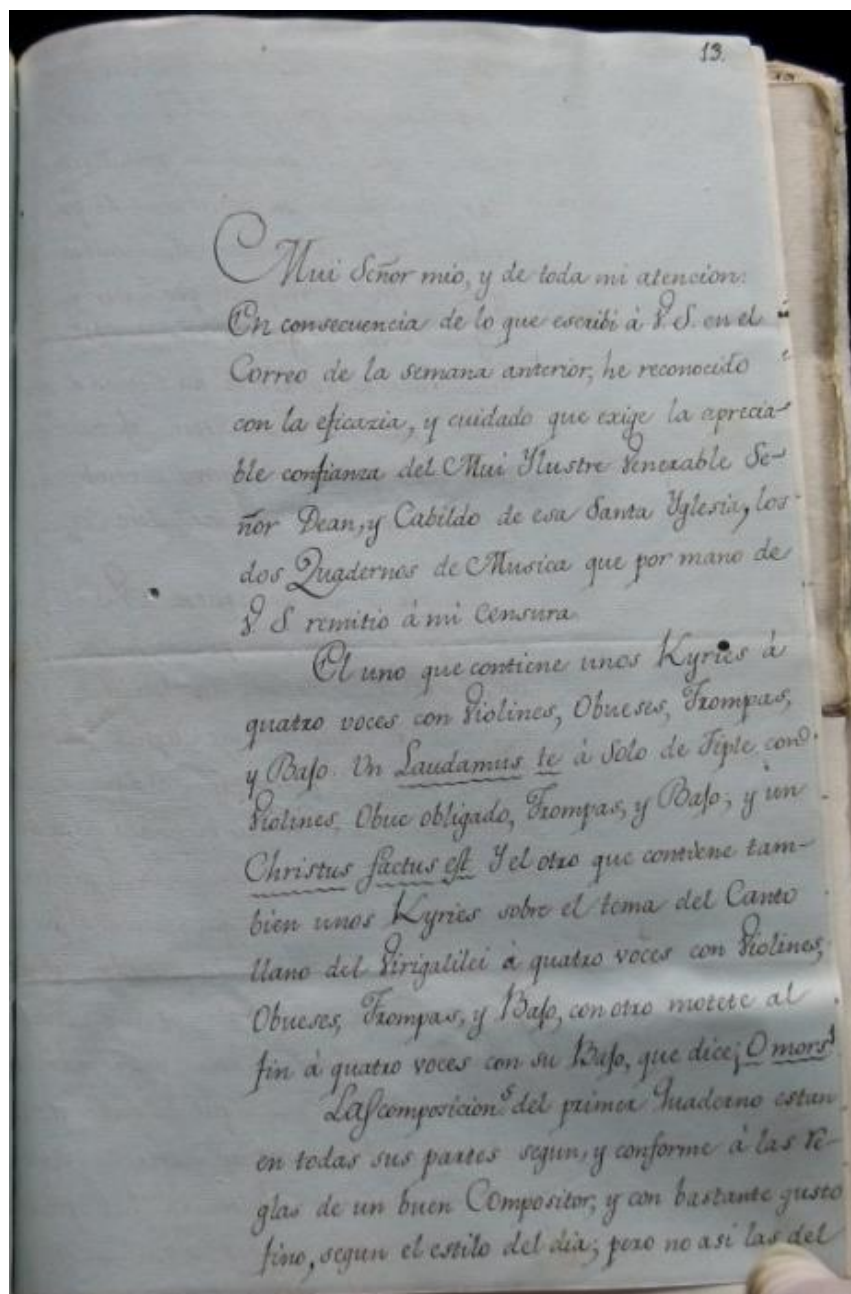 13.
Mui Señor mio, y de toda mi atencion:
En consecuencia de lo que escribi à V. S. en el
Correo de la semana anterior, he reconocido
con la eficazia, y cuidado que exige la aprecia-
ble confianza del Mui Ylustre Venerable Se-
ñor Dean, y Cabildo de esa Santa Yglesia, los
dos Quadernos de Musica que por mano de
V. S. remitio à mi Censura.
El uno que contiene unos Kyries à
quatro voces con Violines, Obueses, Trompas,
y Bajo. Un Laudamus te à Solo de Tiple con
Violines, Obue obligado, Trompas, y Bajo; y un
Christus factus est. Y el otro que contiene tam-
bien unos Kyries sobre el tema del Canto
llano del Virigalilei à quatro voces con Violines,
Obueses, Trompas, y Bajo, con otro motete al
fin à quatro voces con su Bajo, que dice; O mors!
Las composicions del primer Quaderno estan
en todas sus partes segun, y conforme à las re-
glas de un buen Compositor, y con bastante gusto
fino, segun el estilo del dia; pero no asi las del